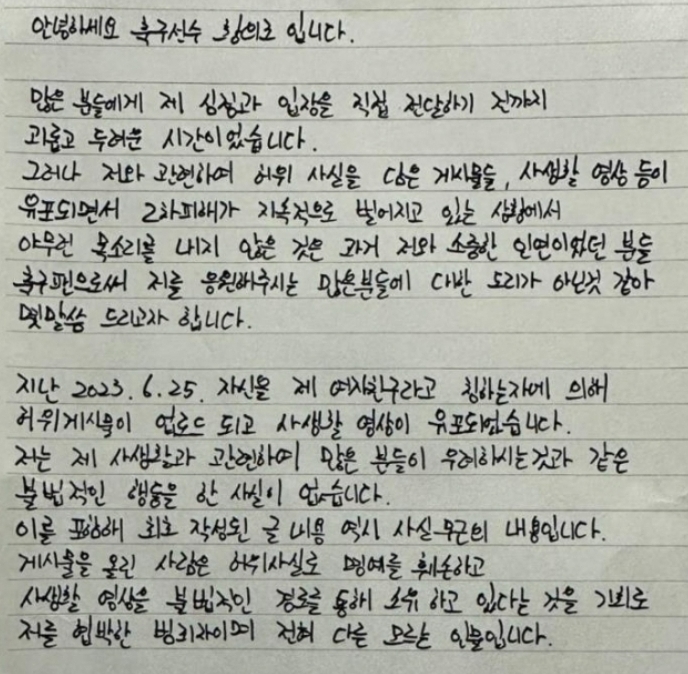 안녕하세요 축구선수 황의조 입니다.
많은 분들에게 제 심정과 입장을 직접 전달하기 전까지
괴롭고 두려운 시간이었습니다.
그러나 저와 관련하여 허위 사실을 담은 게시물들, 사생활 영상 등이
유포되면서 2차피해가 지속적으로 벌어지고 있는 상황에서
아무런 목소리를 내지 않은 것은 과거 저와 소중한 인연이었던 분들
축구팬으로써 저를 응원해주시는 많은분들에 대한 도리가 아닌것 같아
몇말씀 드리고자 합니다.
지난 2023. 6. 25. 자신을 제 여자친구라고 칭하는자에 의해
허위게시물이 업로드 되고 사생활 영상이 유포되었습니다.
저는 제 사생활과 관련하여 많은 분들이 우려하시는것과 같은
불법적인 행동을 한 사실이 없습니다.
이를 포함해 최초 작성된 글 내용 역시 사실무근의 내용입니다.
게시물을 올린 사람은 허위사실로 명예를 훼손하고
사생활 영상을 불법적인 경로를 통해 소유 하고 있다는 것을 기회로
저를 협박한 범죄자이며 전혀 다른 모르는 인물입니다.